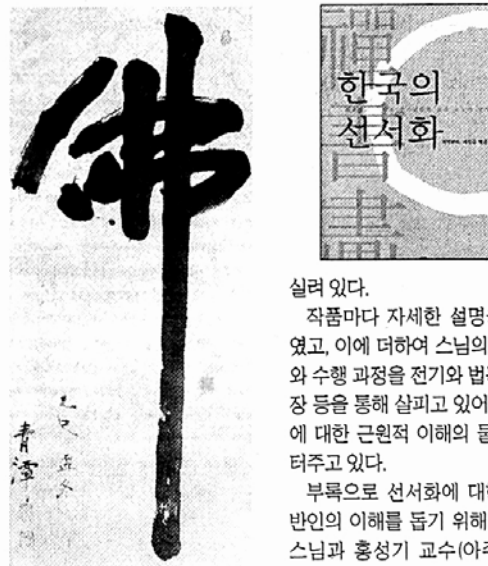 佛
青潭
禪書畵
한국의
선서화
실려 있다.
작품마다 자세한 설명
였고, 이에 더하여 스님의
와 수행 과정을 전기와 법
장 등을 통해 살피고 있어
에 대한 근원적 이해의 물
터주고 있다.
부록으로 선서화에 대
반인의 이해를 돕기 위해
스님과 홍성기 교수(아주